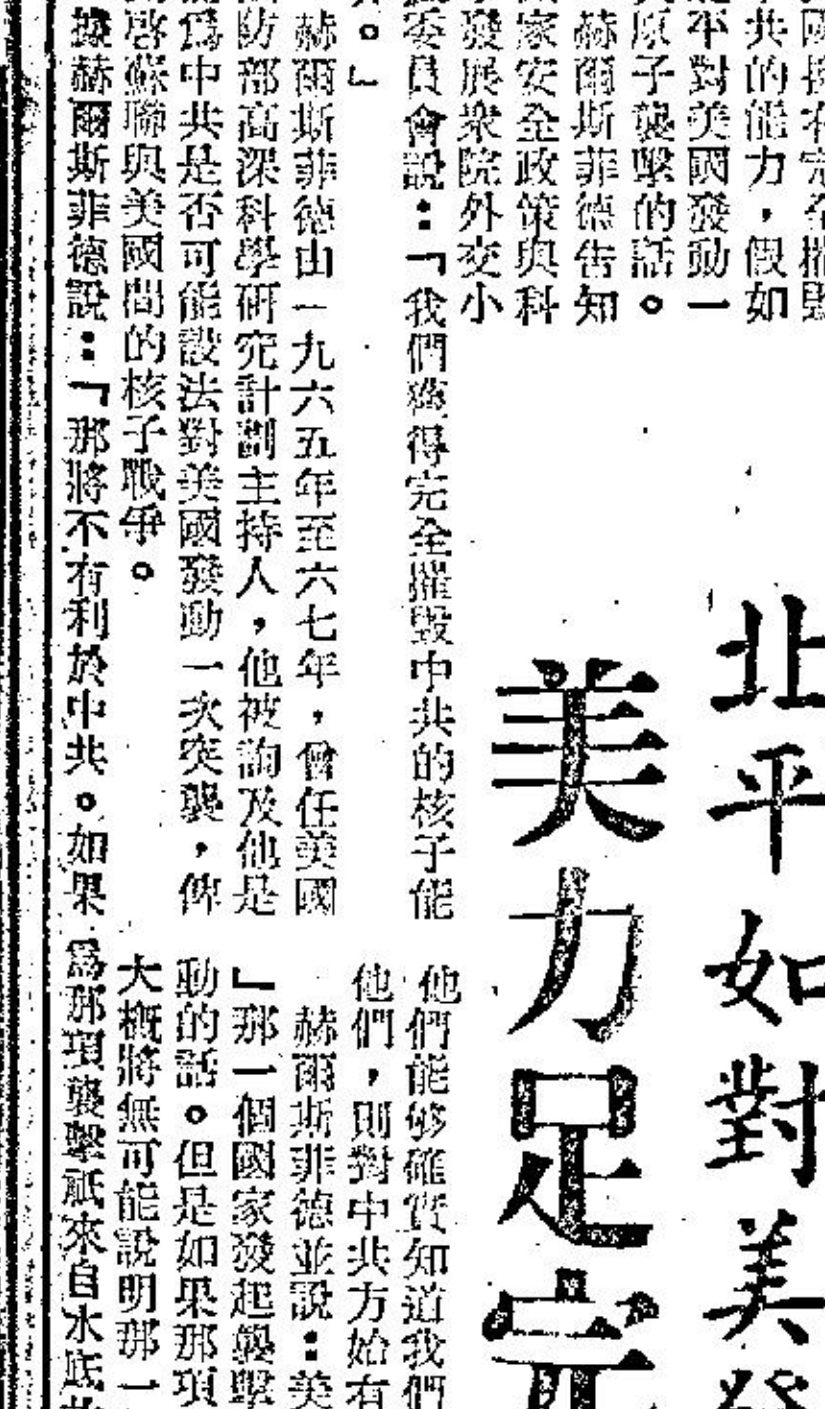 北平如對美發
美力足完
共的能力，假如
能平對美國發動一
原子襲擊的話。
赫爾斯菲德告知
家安全政策與科
學發展衆院外交小
委員會說：「我們獲得完全摧毀中共的核子能
。」
赫爾斯菲德由一九六五年至六七年，曾任美國
防部高深科學研究計劃主持人，他被詢及他是
爲中共是否可能設法對美國發動一次突襲，俾
啓蘇聯與美國間的核子戰爭。
據赫爾斯菲德說：「那將不有利於中共。如果
他們能够確實知道我們
他們，則對中共方始有
赫爾斯菲德並說：美
」那一個國家發起襲擊
動的話。但是如果那項
大概將無可能說明那一
爲那項襲擊祗來自水底